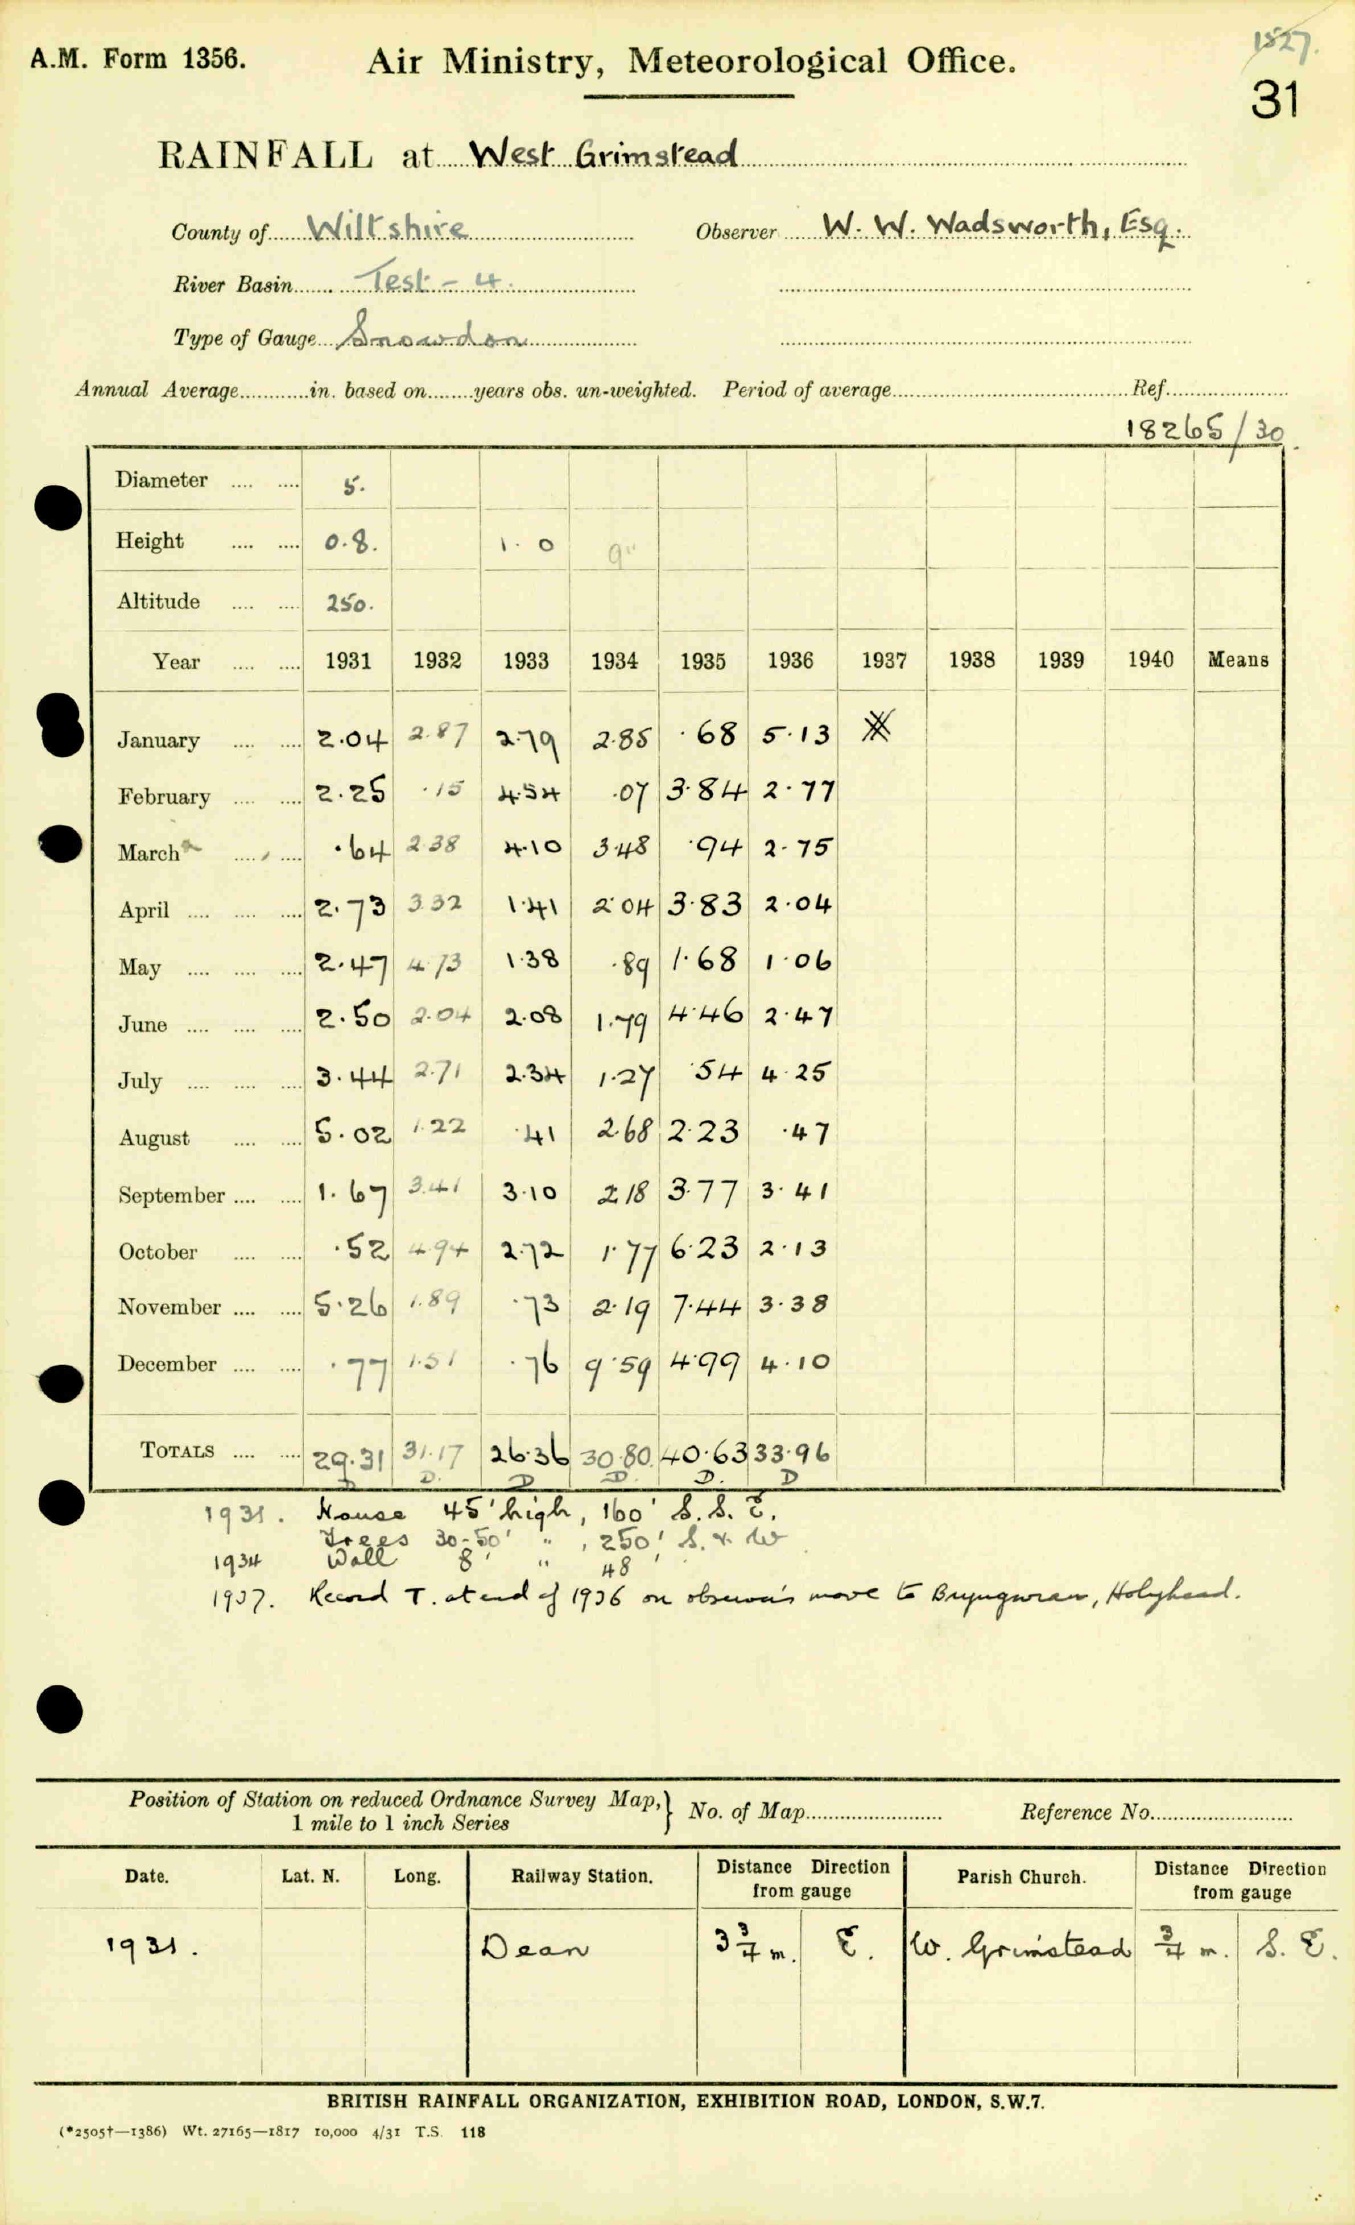 1527.
A.M. Form 1356. Air Ministry, Meteorological Office.
31
RAINFALL at West Grimstead
County of Wiltshire Observer W. W. Wadsworth, Esq.
River Basin Test - 4.
Type of Gauge Snowdon
Annual Average in. based on years obs. un-weighted. Period of average Ref.
18265/30.
Diameter 5.
Height 0.8. 1.0 9"
Altitude 250.
Year 1931 1932 1933 1934 1935 1936 1937 1938 1939 1940 Means
January 2.04 2.87 2.79 2.85 .68 5.13
February 2.25 .15 4.54 .07 3.84 2.77
March .64 2.38 4.10 3.48 .94 2.75
April 2.73 3.32 1.41 2.04 3.83 2.04
May 2.47 4.73 1.38 .89 1.68 1.06
June 2.50 2.04 2.08 1.79 4.46 2.47
July 3.44 2.71 2.34 1.27 .54 4.25
August 5.02 1.22 .41 2.68 2.23 .47
September 1.67 3.41 3.10 2.18 3.77 3.41
October .52 4.94 2.72 1.77 6.23 2.13
November 5.26 1.89 .73 2.19 7.44 3.38
December .77 1.51 .76 9.59 4.99 4.10
TOTALS 29.31 31.17 26.36 30.80 40.63 33.96
D D. D D. D. D
1931. House 45' high, 160' S.S.E.
Trees 30-50' " , 250' S. & W
1934 Wall 8' " 48'
1937. Record T. at end of 1936 on observer's move to Bryngwran, Holyhead.
Position of Station on reduced Ordnance Survey Map,} No. of Map Reference No.
1 mile to 1 inch Series
Date. Lat. N. Long. Railway Station. Distance Direction from gauge Parish Church. Distance Direction from gauge
1931. Dean 3 3/4 m. E. W. Grimstead 3/4 m. S. E.
BRITISH RAINFALL ORGANIZATION, EXHIBITION ROAD, LONDON, S.W.7.
(*2505†—1386) Wt. 27165—1817 10,000 4/31 T.S. 118